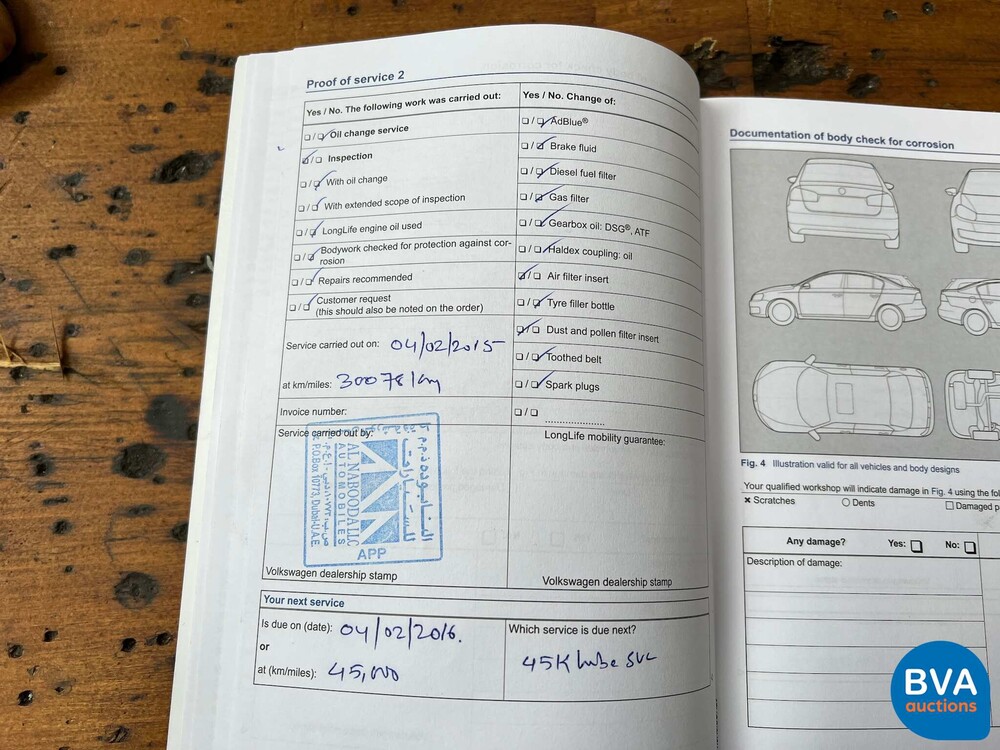 Proof of service 2
Yes / No. The following work was carried out:
Oil change service
Inspection
With oil change
With extended scope of inspection
LongLife engine oil used
Bodywork checked for protection against cor-
rosion
Repairs recommended
Customer request
(this should also be noted on the order)
Service carried out on: 04/02/2015
at km/miles: 30078 km
Invoice number:
Service carried out by:
النابوده ذ.م.م
للسيارات
AL NABOODA LLC
AUTOMOBILES
P.O.Box 10773, Dubai-U.A.E.
APP
Volkswagen dealership stamp
Yes / No. Change of:
AdBlue®
Brake fluid
Diesel fuel filter
Gas filter
Gearbox oil: DSG®, ATF
Haldex coupling: oil
Air filter insert
Tyre filler bottle
Dust and pollen filter insert
Toothed belt
Spark plugs
LongLife mobility guarantee:
Volkswagen dealership stamp
Your next service
Is due on (date): 04/02/2016.
or
at (km/miles): 45,000
Which service is due next?
45K lube svc
Documentation of body check for corrosion
Fig. 4 Illustration valid for all vehicles and body designs
Your qualified workshop will indicate damage in Fig. 4 using the
Scratches
Dents
Damaged
Any damage? Yes: No:
Description of damage:
BVA
auctions